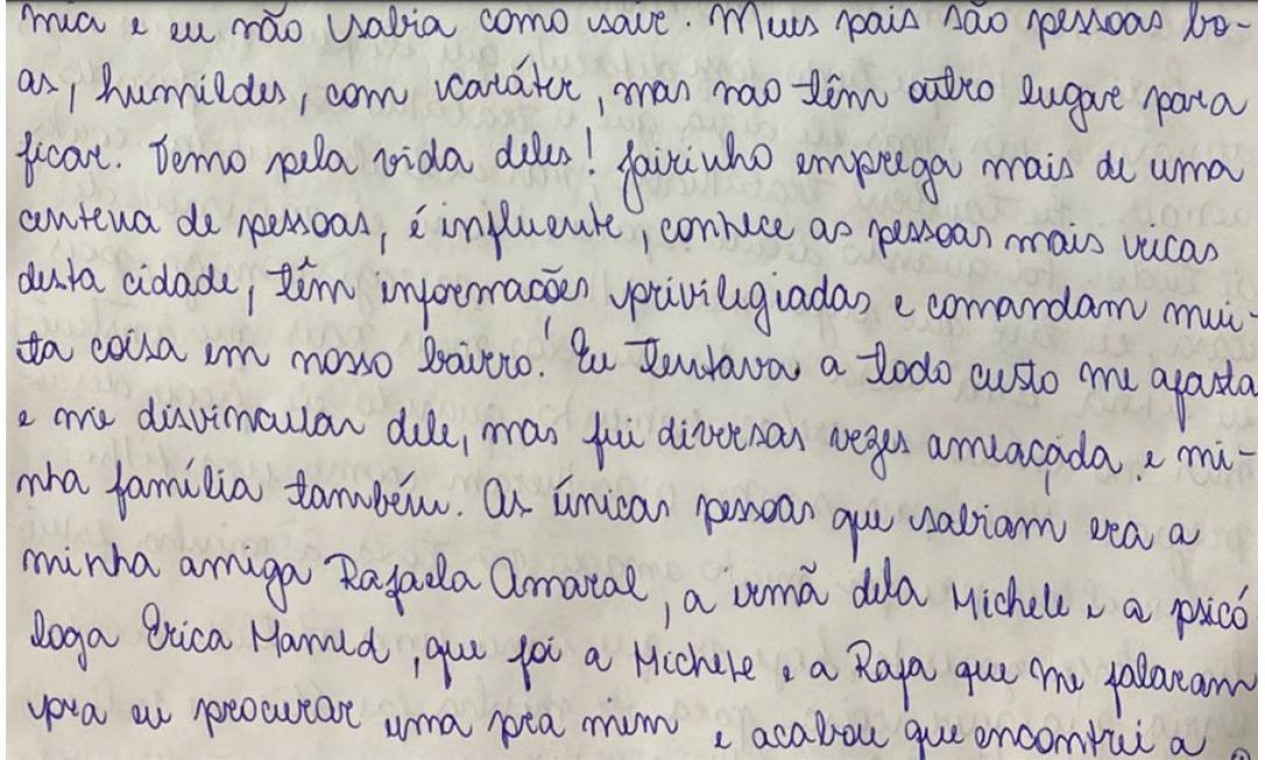 mia e eu não sabia como sair. Meus pais são pessoas bo-
as, humildes, com caráter, mas nao têm outro lugar para
ficar. Temo pela vida deles! Jairinho emprega mais de uma
centena de pessoas, é influente, conhece as pessoas mais ricas
desta cidade, têm informações priviligiadas e comandam mui-
ta coisa em nosso bairro! Eu tentava a todo custo me afasta
e me disvincular dele, mas fui diversas vezes ameaçada e mi-
nha família também. As únicas pessoas que sabiam era a
minha amiga Rafaela Amaral, a irmã dela Michele e a psicó
loga Erica Mamed, que foi a Michele e a Rafa que me falaram
pra eu procurar uma pra mim e acabou que encontrei a